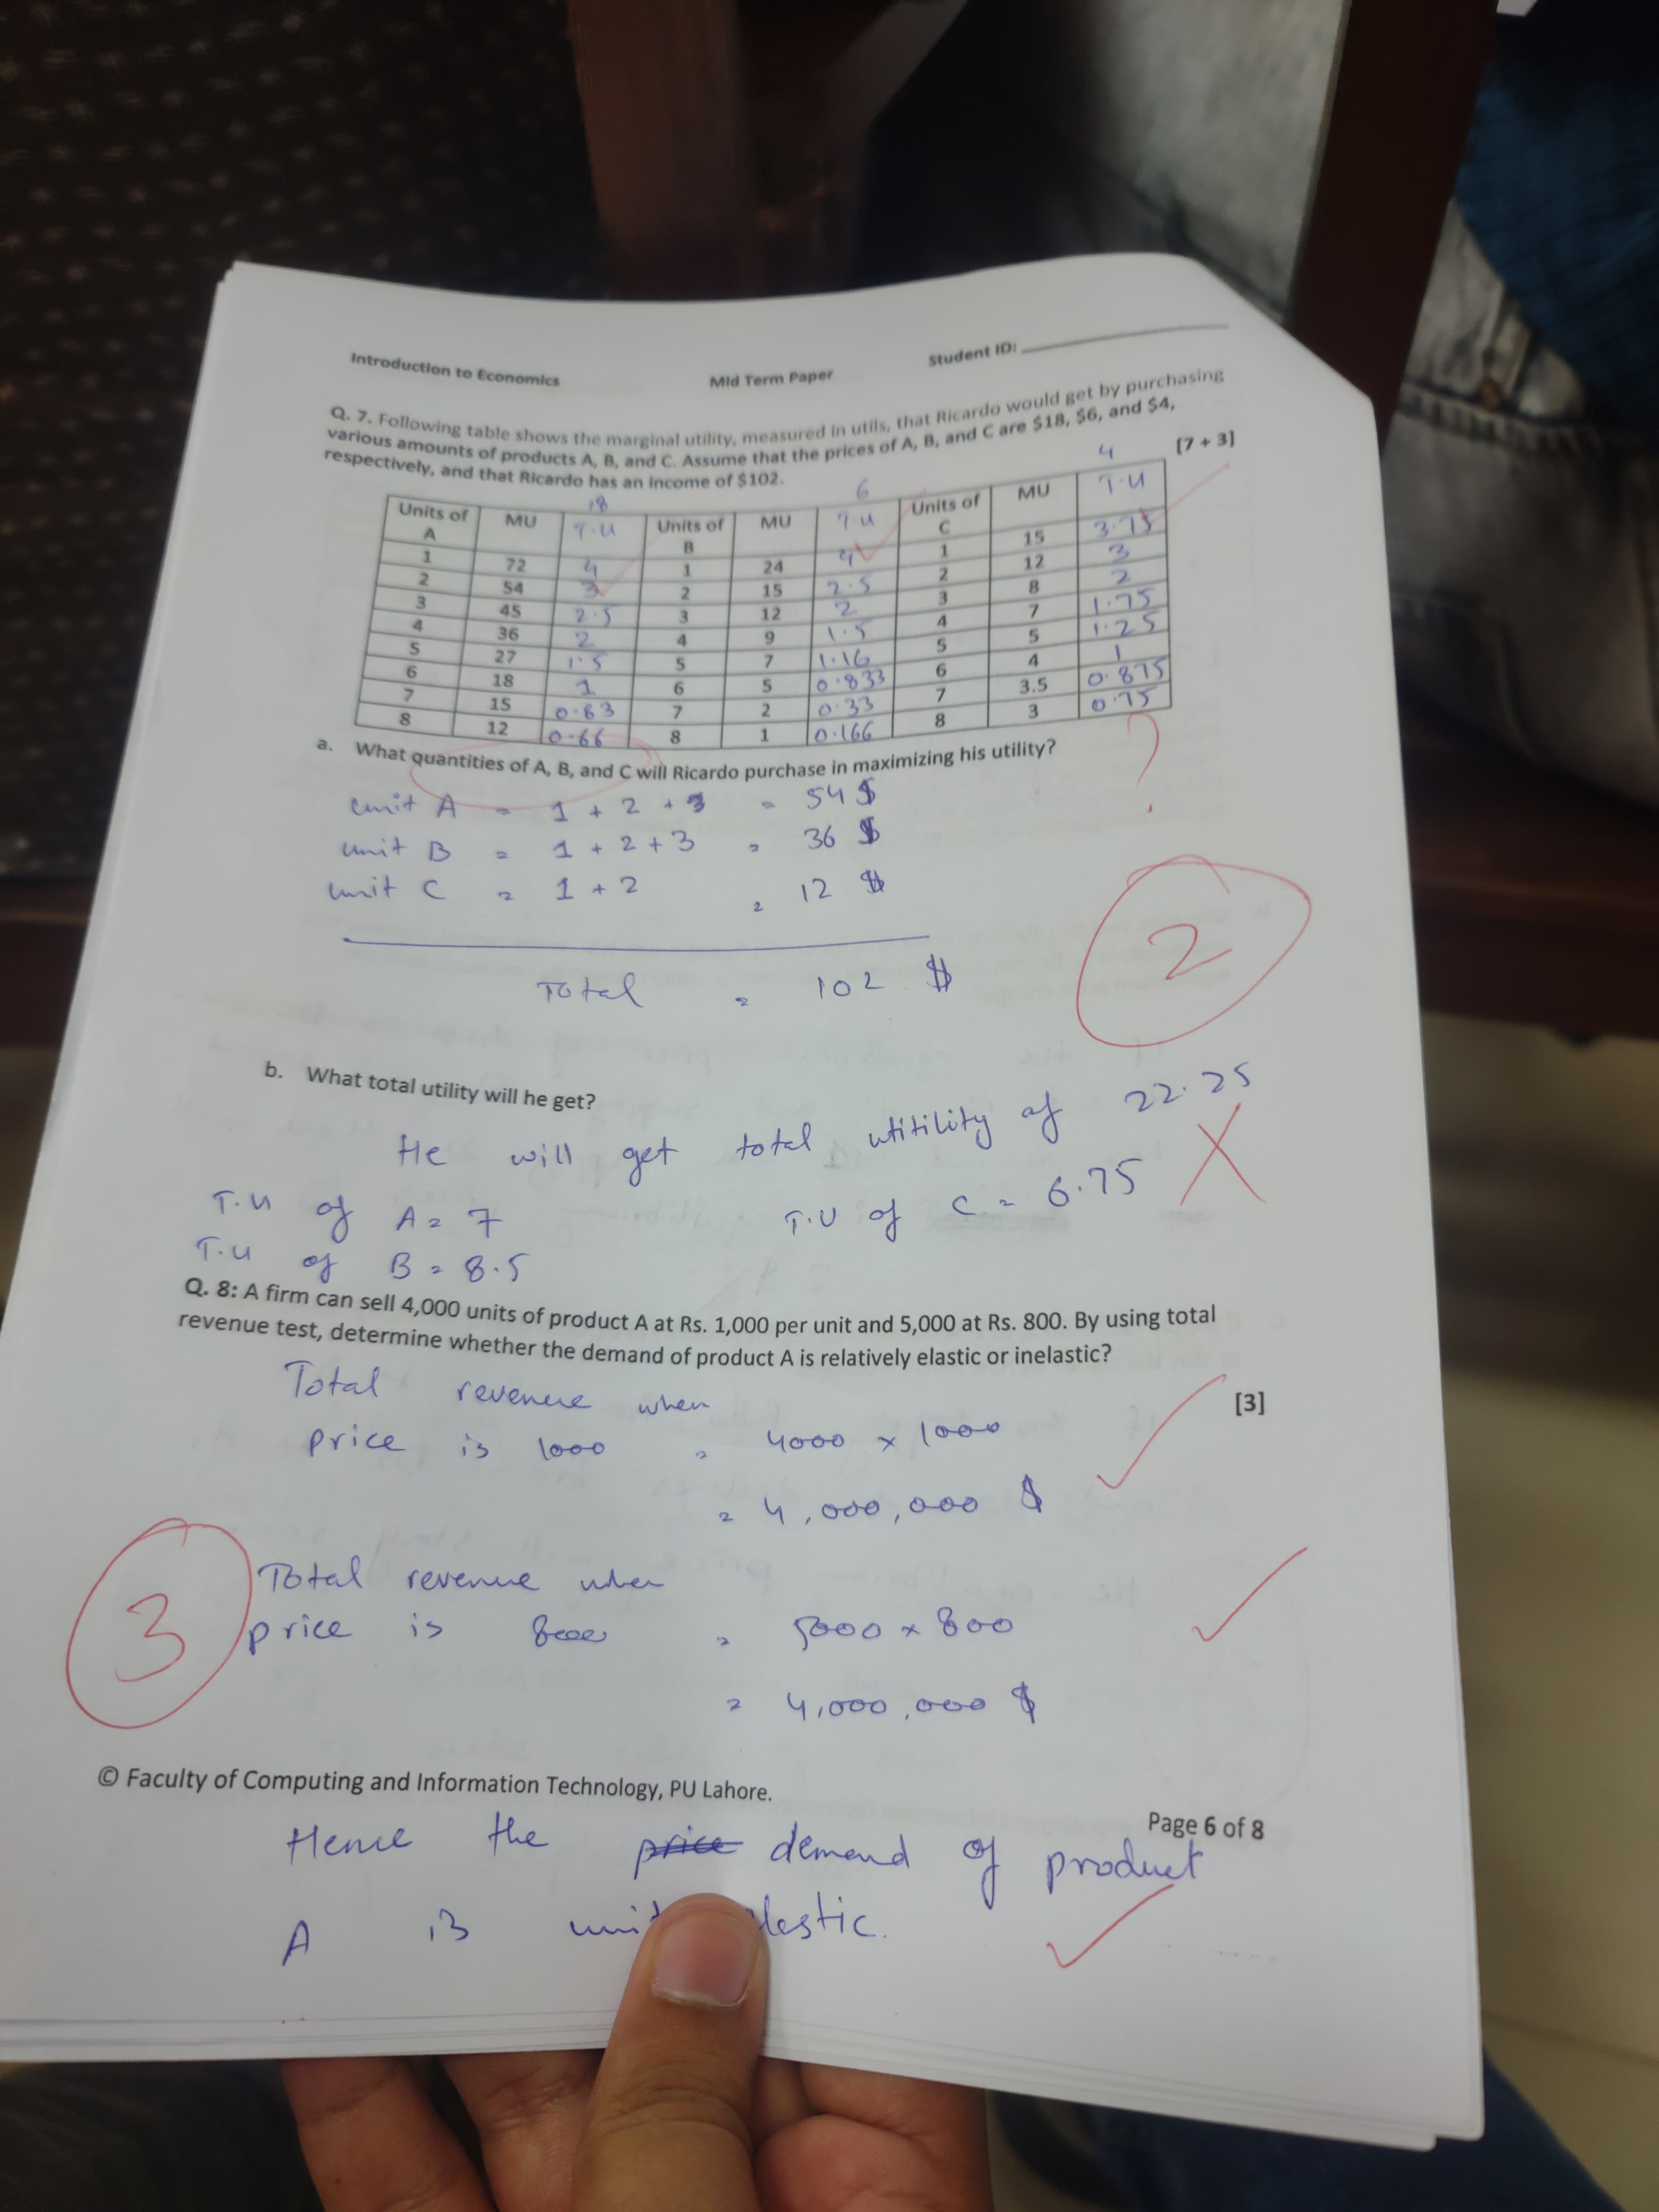 Introduction to Economics Mid Term Paper Student ID:
Q. 7. Following table shows the marginal utility, measured in utils, that Ricardo would get by purchasing
various amounts of products A, B, and C. Assume that the prices of A, B, and C are $18, $6, and $4,
respectively, and that Ricardo has an income of $102. [7 + 3]
18 6 4
Units of A MU T.U Units of B MU T.U Units of C MU T.U
1 72 4 1 24 4 1 15 3.75
2 54 3 2 15 2.5 2 12 3
3 45 2.5 3 12 2 3 8 2
4 36 2 4 9 1.5 4 7 1.75
5 27 1.5 5 7 1.16 5 5 1.25
6 18 1 6 5 0.833 6 4 1
7 15 0.83 7 2 0.33 7 3.5 0.875
8 12 0.66 8 1 0.166 8 3 0.75
a. What quantities of A, B, and C will Ricardo purchase in maximizing his utility?
?
unit A = 1 + 2 + 3 = 54 $
unit B = 1 + 2 + 3 = 36 $
unit C = 1 + 2 = 12 $
2
Total = 102 $
b. What total utility will he get?
He will get total utitility of 22.25
T.U of A = 7 T.U of C = 6.75
T.U of B = 8.5
Q. 8: A firm can sell 4,000 units of product A at Rs. 1,000 per unit and 5,000 at Rs. 800. By using total
revenue test, determine whether the demand of product A is relatively elastic or inelastic?
[3]
Total revenue when
price is 1000 = 4000 × 1000
= 4,000,000 $
3
Total revenue when
price is = 5000 × 800
= 4,000,000 $
© Faculty of Computing and Information Technology, PU Lahore.
Page 6 of 8
Hence the price demand of product
A is